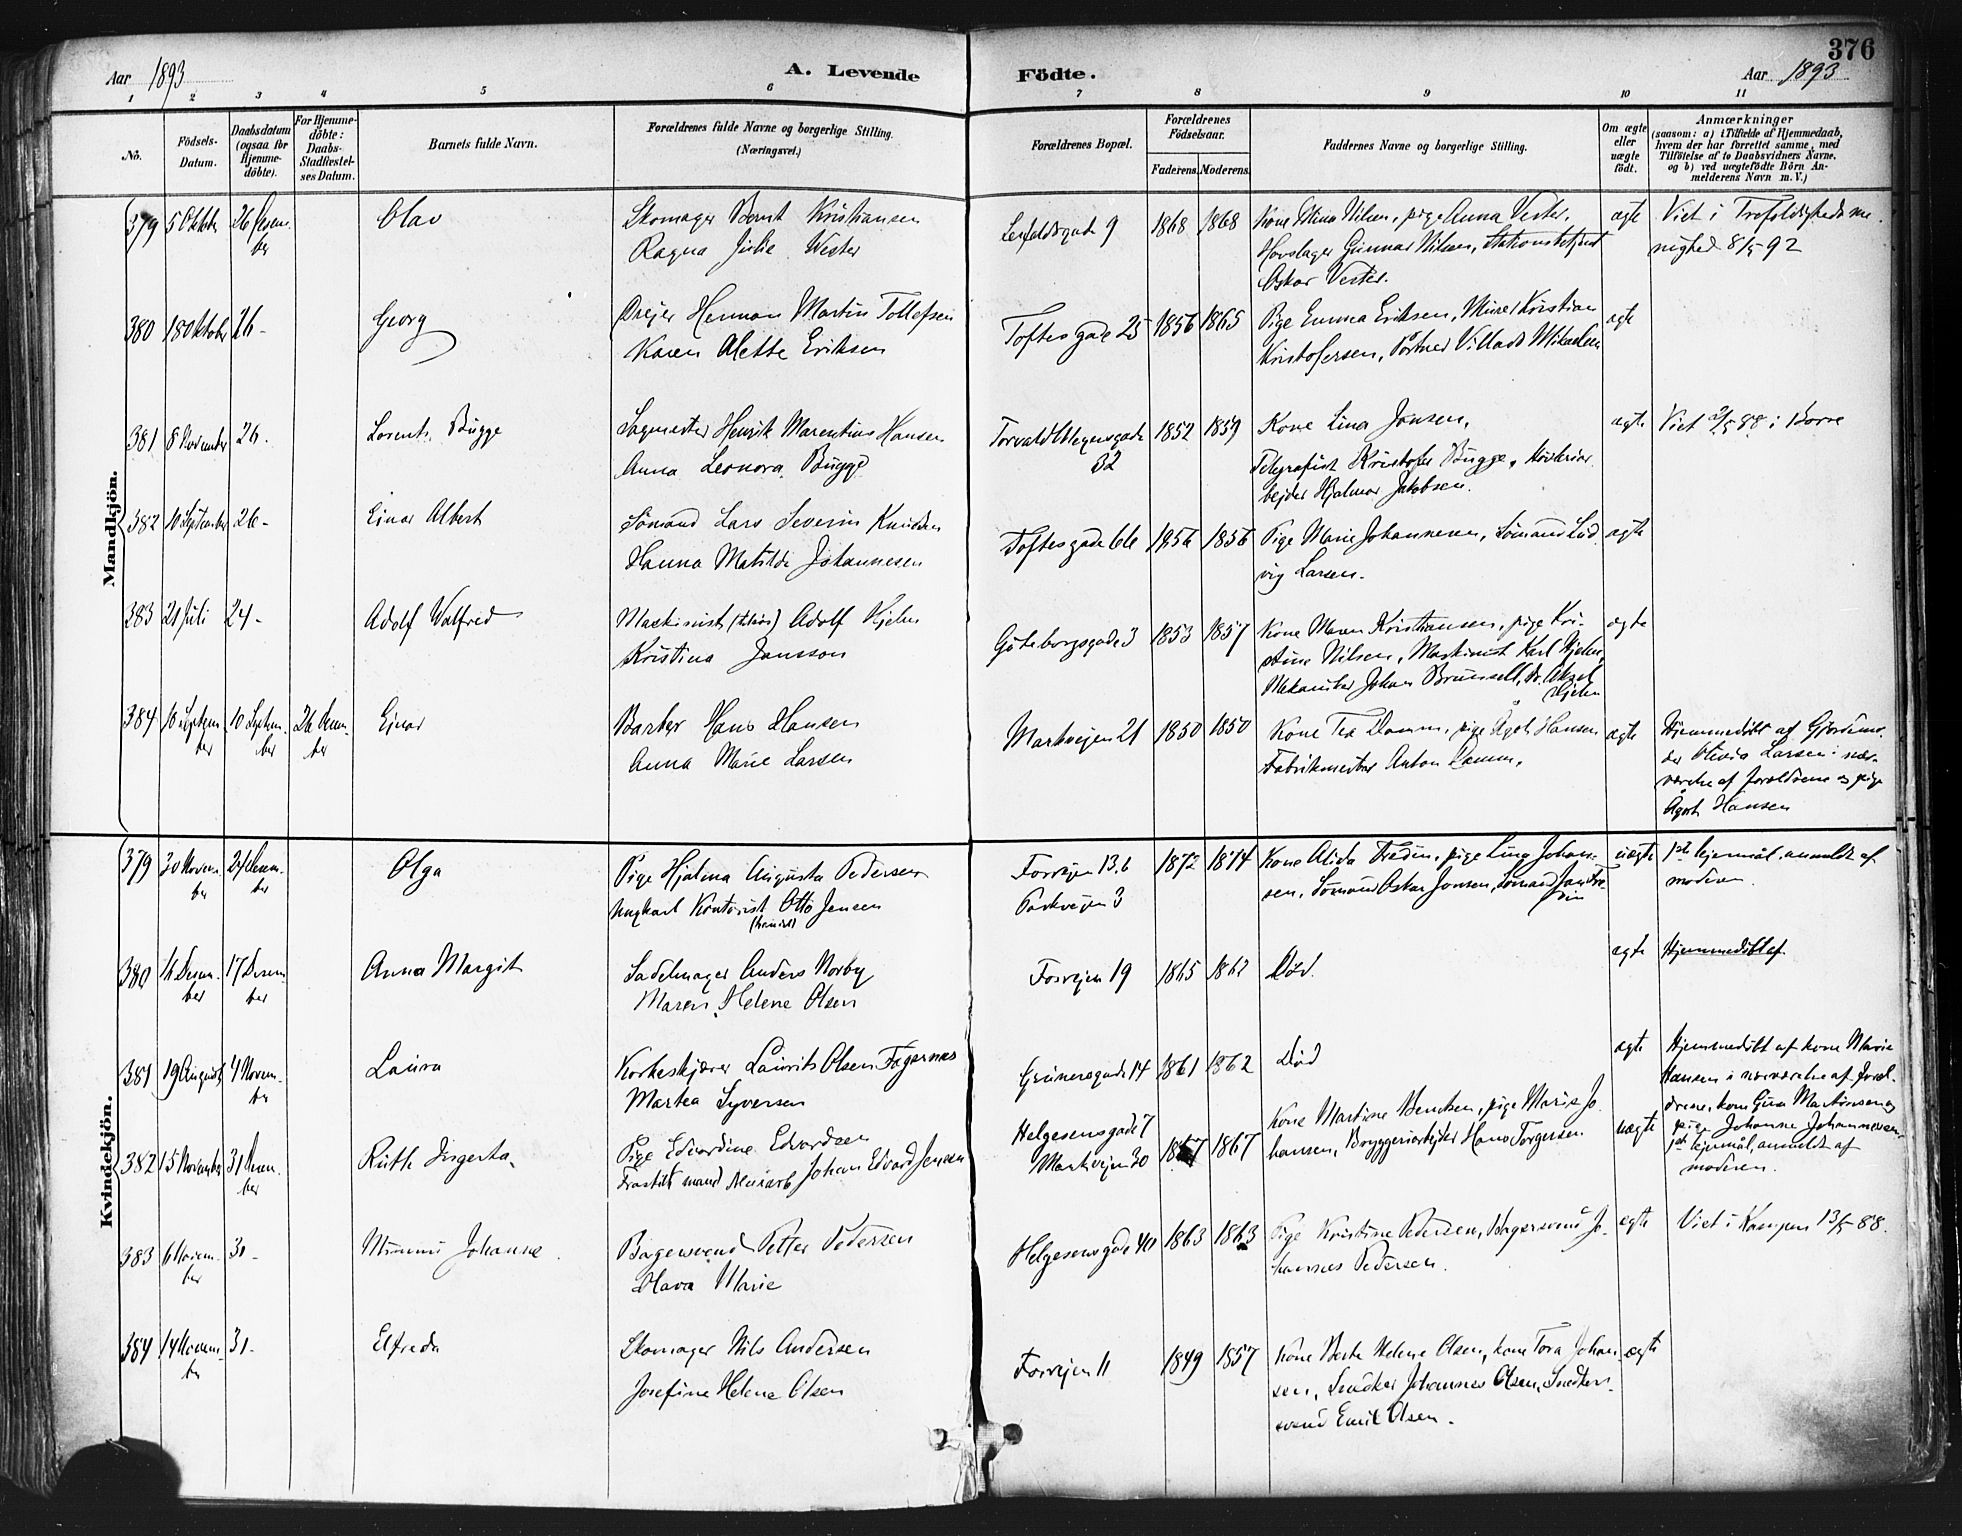 376
Aar 1893
A. Levende
Födte.
Aar 1893
1 2 3 4 5 6 7 8 9 10 11
No.
Födsels-
Datum.
Daabsdatum
(ogsaa for
Hjemme-
döbte).
For Hjemme-
döbte:
Daabs-
Stadfæstel-
ses Datum.
Barnets fulde Navn.
Forældrenes fulde Navne og borgerlige Stilling.
(Næringsvei.)
Forældrenes Bopæl.
Forældrenes
Födselsaar.
Faderens. Moderens.
Faddernes Navne og borgerlige Stilling.
Om ægte
eller
uægte
født.
Anmærkninger
(saasom: a) i Tilfælde af Hjemmedaab,
hvem der har forrettet samme, med
Tilföielse af to Daabsvidners Navne,
og b) ved uægtefödte Börn An-
melderens Navn m. V.)
Mandkjön.
379 5 Oktober 26 Desem-
ber
Olav
Skomager Bernt Kristiansen
Ragna Julie Wester
9 1868 1868
Kone Mina Nilsen, pige Anna Vester,
Hovslager Gunnar Nilsen,
Oskar Vester.
ægte
Viet i Trefoldigheds me-
nighed 8/5 92
380 18 Oktober 26 -
Georg
Drejer Herman Martin Tollefsen
Karen Alette Eriksen
Toftesgade 25 1856 1865
Pige Emma Eriksen, Murer Kristian
Kristofersen, Portner Villads Mikaelsen
ægte
381 8 November 26.
Lorents Bugge
Sagmester Henrik Marentius Hansen
Anna Leonora Bugge
Torvald Meyersgade
32
1852 1859
Kone Lina Jansen,
Telegrafist Kristofer Bugge,
bejder Hjalmar Jakobsen.
ægte
Viet 88 i Borre
382 10 September 26 -
Einar Albert
Sömand Lars Severin Knudsen
Hanna Matilde Johannesen
Toftesgade 66 1856 1856
Pige Marie Johannesen, Sömand Lud
vig Larsen.
ægte
383 21 Juli 24 -
Adolf Walfred
Maskinist Adolf Hjelm
Kristina Jansson
Göteborgsgade 3 1853 1857
Kone Maren Kristiansen, pige Kri-
stine Nilsen, Maskinist Karl Hjelm,
Mekaniker Johan Brunsell, Aksel
Hjelm
ægte
384 10 Septem
ber
10 Septem-
ber
26 Desem
ber
Ejnar
Barber Hans Hansen
Anna Marie Larsen
Markvejen 21 1850 1850
Kone Tea Damm, pige Ågot Hansen
Fabrikmester Anton Damm.
ægte
Hjemmedöbt af Gjordemo-
der Olivia Larsen i nær-
værelse af foreldrene og pige
Ågot Hansen
Kvindekjön.
379 30 Novem-
ber
26 Desem-
ber
Olga
Pige Hjalma Augusta Pedersen
Ungkarl Kontorist Otto Jensen
Fossvejen 13.b
Parkveien 3
1872 1874
Kone Alida Fredin, pige Lina Johan-
sen, Sömand Oskar Jonsen, Sömand
uægte
1ste lejermål, anmeldt af
moderen
380 16 Desem-
ber
17 Desem-
ber
Anna Margit
Sadelmager Anders Norby
Maren Helene Olsen
Fossvejen 19 1865 1862
Död.
ægte
Hjemmedöbt af
381 19 August 4 Novem-
ber
Laura
Korkeskjærer Laurits Olsen Fagernæs
Martea Syversen
Grünersgade 14 1861 1862
Död
ægte
Hjemmedöbt af kone Marie
Hansen i nærværelse af forel-
drene, kone Gina Martinsen og
pige Johanne Johannesen.
382 15 November 31 Desem-
ber
Ruth Ingerta.
Pige Edvardine Edvardsen
Fraskilt mand Murarb Johan Edvard Jensen
Helgesensgade 7
Markvejen 30
1867 1867
Kone Martine Bendsen, pige Marie Jo
hansen, Bryggeriarbejder Hans Torgersen
uægte
1ste lejermål, anmeldt af
moderen.
383 6 Novem-
ber
31 -
Mimmi Johanne
Bagersvend Petter Pedersen
Olava Marie
Helgesensgade 40 1863 1863
Pige Kristine Pedersen, Bagersvend Jo-
hannes Pedersen.
ægte
Viet i Kampen 13/5 88.
384 14 Novem-
ber
31 -
Elfreda
Skomager Nils Andersen
Josefine Helene Olsen
Fossvejen 11 1849 1857
Kone Berte Helene Olsen, kone Tora Johan
sen, Snedker Johannes Olsen, Snedker-
svend Emil Olsen.
ægte